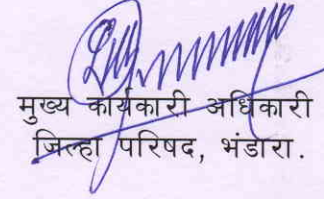 मुख्य कार्यकारी अधिकारी
जिल्हा परिषद, भंडारा.